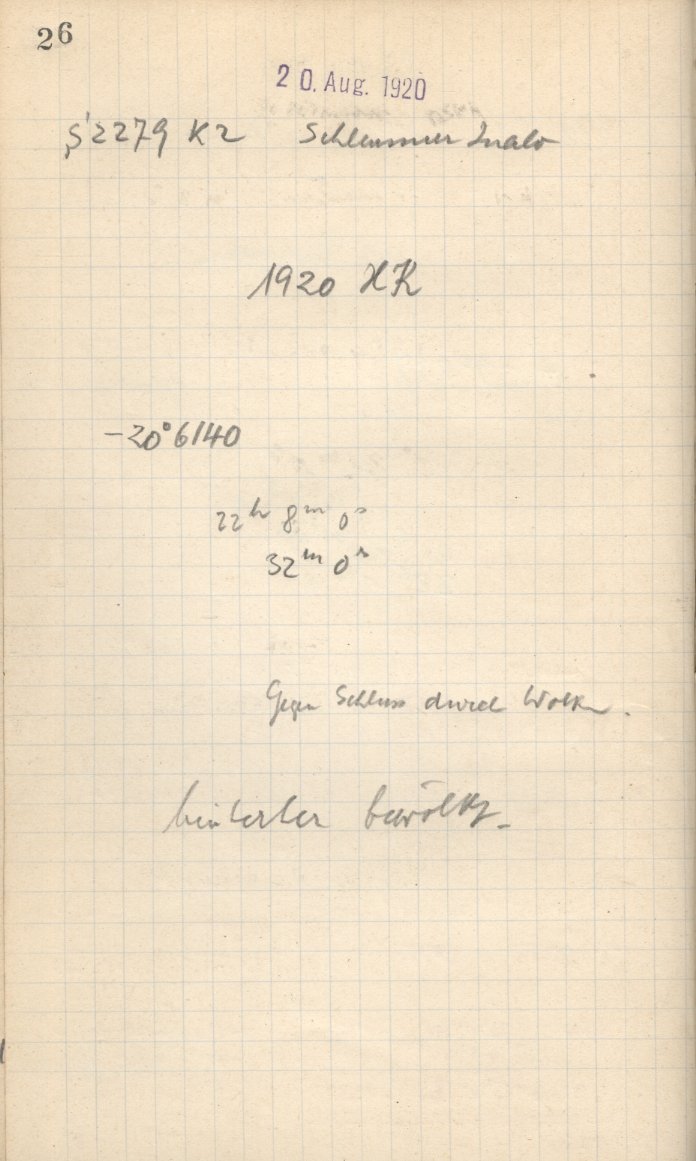 26
20. Aug. 1920
S 2279 K2 Schleussner Inalo
1920 HK
-20°6140
22h 8m 0s
32m 0s
Gegen Schluss durch Wolken.
hinterher bewölkt.